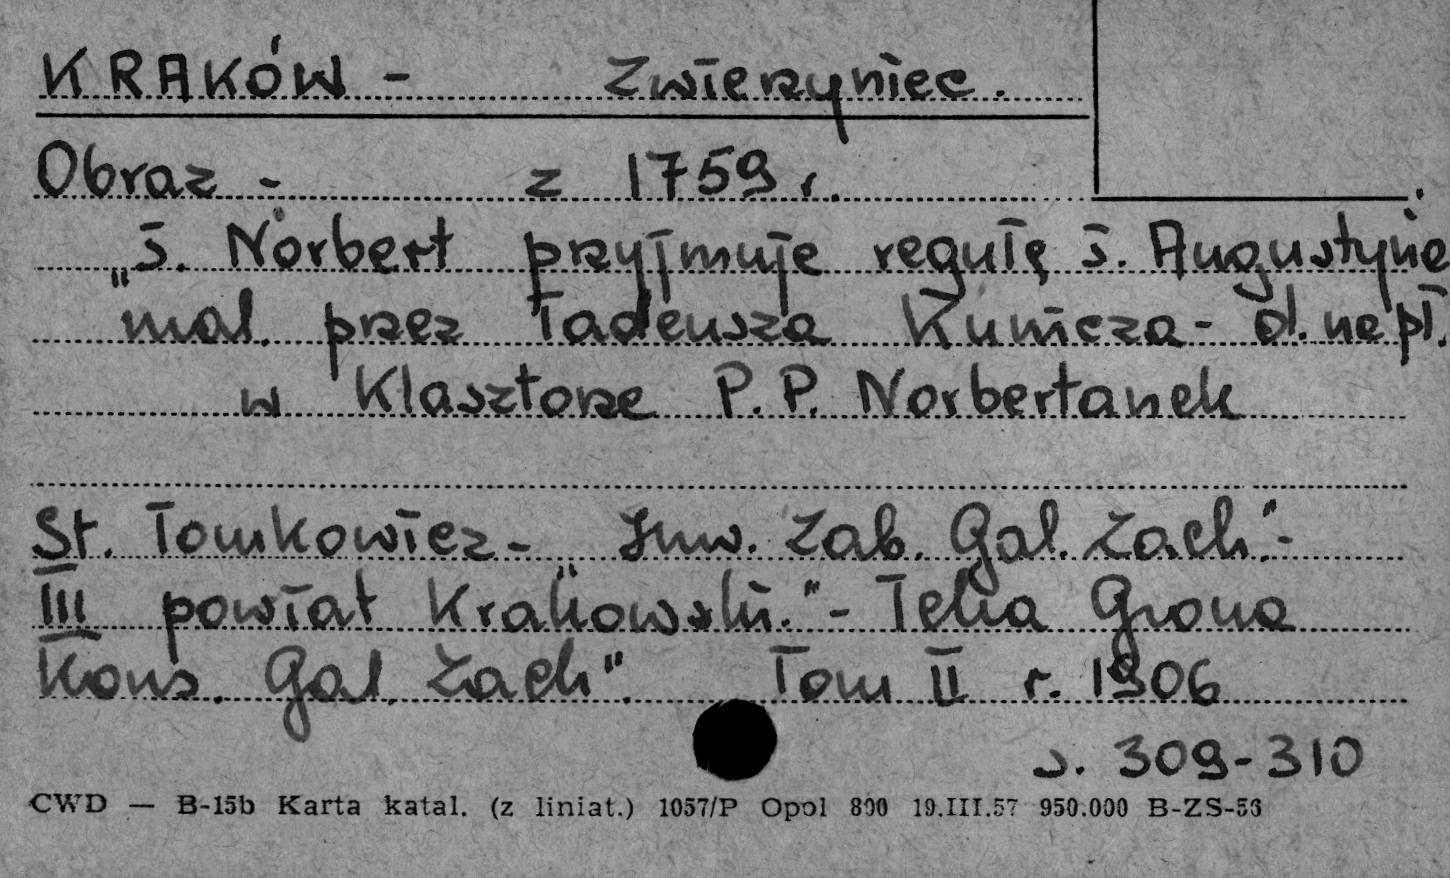 KRAKÓW - Zwierzyniec.
Obraz - z 1759 r.
"ś. Norbert przyjmuje regułę ś. Augustyna"
mal. przez Tadeusza Kunicza - ol. na pł.
w Klasztorze P.P. Norbertanek
St. Tomkowicz - "Inw. Zab. Gal. Zach." -
III powiat Krakowski." - Teka Grona
Kons. Gal. Zach". Tom II r. 1906
s. 309-310
CWD — B-15b Karta katal. (z liniat.) 1057/P Opol 800 19.III.57 950.000 B-ZS-56